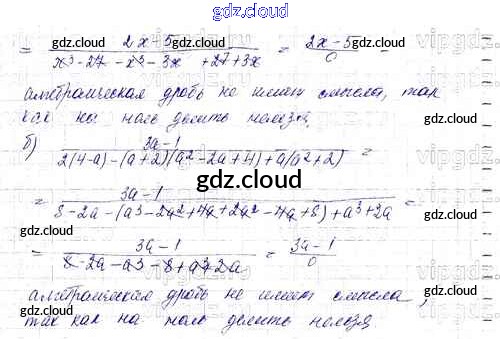 gdz.cloud
= (2x-5)/(x³-27-x³-3x+27+3x) = (2x-5)/0 =
gdz.cloud gdz.cloud
алгебраическая дробь не имеет смысла, так
как на ноль делить нельзя
gdz.cloud
б) (3a-1)/(2(4-a)-(a+2)(a²-2a+4)+a(a²+2)) =
gdz.cloud
= (3a-1)/(8-2a-(a³-2a²+4a+2a²-4a+8)+a³+2a) =
= (3a-1)/(8-2a-a³-8+a³+2a) = (3a-1)/0
gdz.cloud gdz.cloud
алгебраическая дробь не имеет смысла,
так как на ноль делить нельзя
gdz.cloud